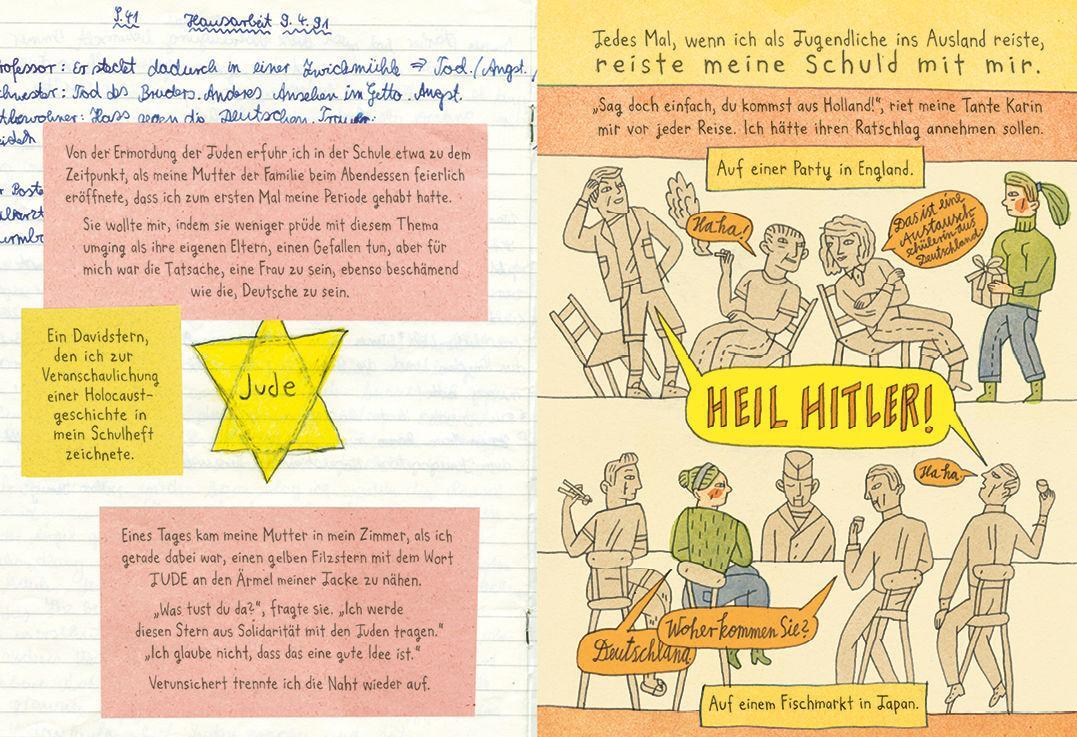 S. 41 Hausarbeit 9.4.91
rofessor: Er steckt dadurch in einer Zwickmühle ⇒ Tod. / Angst. /
chwester: Tod des Bruders. Anderes Ansehen im Getto. Angst.
tbewohner: Hass gegen die Deutschen. Trauer.
r Poste
Von der Ermordung der Juden erfuhr ich in der Schule etwa zu dem
Zeitpunkt, als meine Mutter der Familie beim Abendessen feierlich
eröffnete, dass ich zum ersten Mal meine Periode gehabt hatte.
Sie wollte mir, indem sie weniger prüde mit diesem Thema
umging als ihre eigenen Eltern, einen Gefallen tun, aber für
mich war die Tatsache, eine Frau zu sein, ebenso beschämend
wie die, Deutsche zu sein.
Ein Davidstern,
den ich zur
Veranschaulichung
einer Holocaust-
geschichte in
mein Schulheft
zeichnete.
Jude
Eines Tages kam meine Mutter in mein Zimmer, als ich
gerade dabei war, einen gelben Filzstern mit dem Wort
JUDE an den Ärmel meiner Jacke zu nähen.
„Was tust du da?“, fragte sie. „Ich werde
diesen Stern aus Solidarität mit den Juden tragen.“
„Ich glaube nicht, dass das eine gute Idee ist.“
Verunsichert trennte ich die Naht wieder auf.
Jedes Mal, wenn ich als Jugendliche ins Ausland reiste,
reiste meine Schuld mit mir.
„Sag doch einfach, du kommst aus Holland!“, riet meine Tante Karin
mir vor jeder Reise. Ich hätte ihren Ratschlag annehmen sollen.
Auf einer Party in England.
Haha!
Das ist eine
Austausch-
schülerin aus
Deutschland.
HEIL HITLER!
Haha.
Woher kommen Sie?
Deutschland.
Auf einem Fischmarkt in Japan.